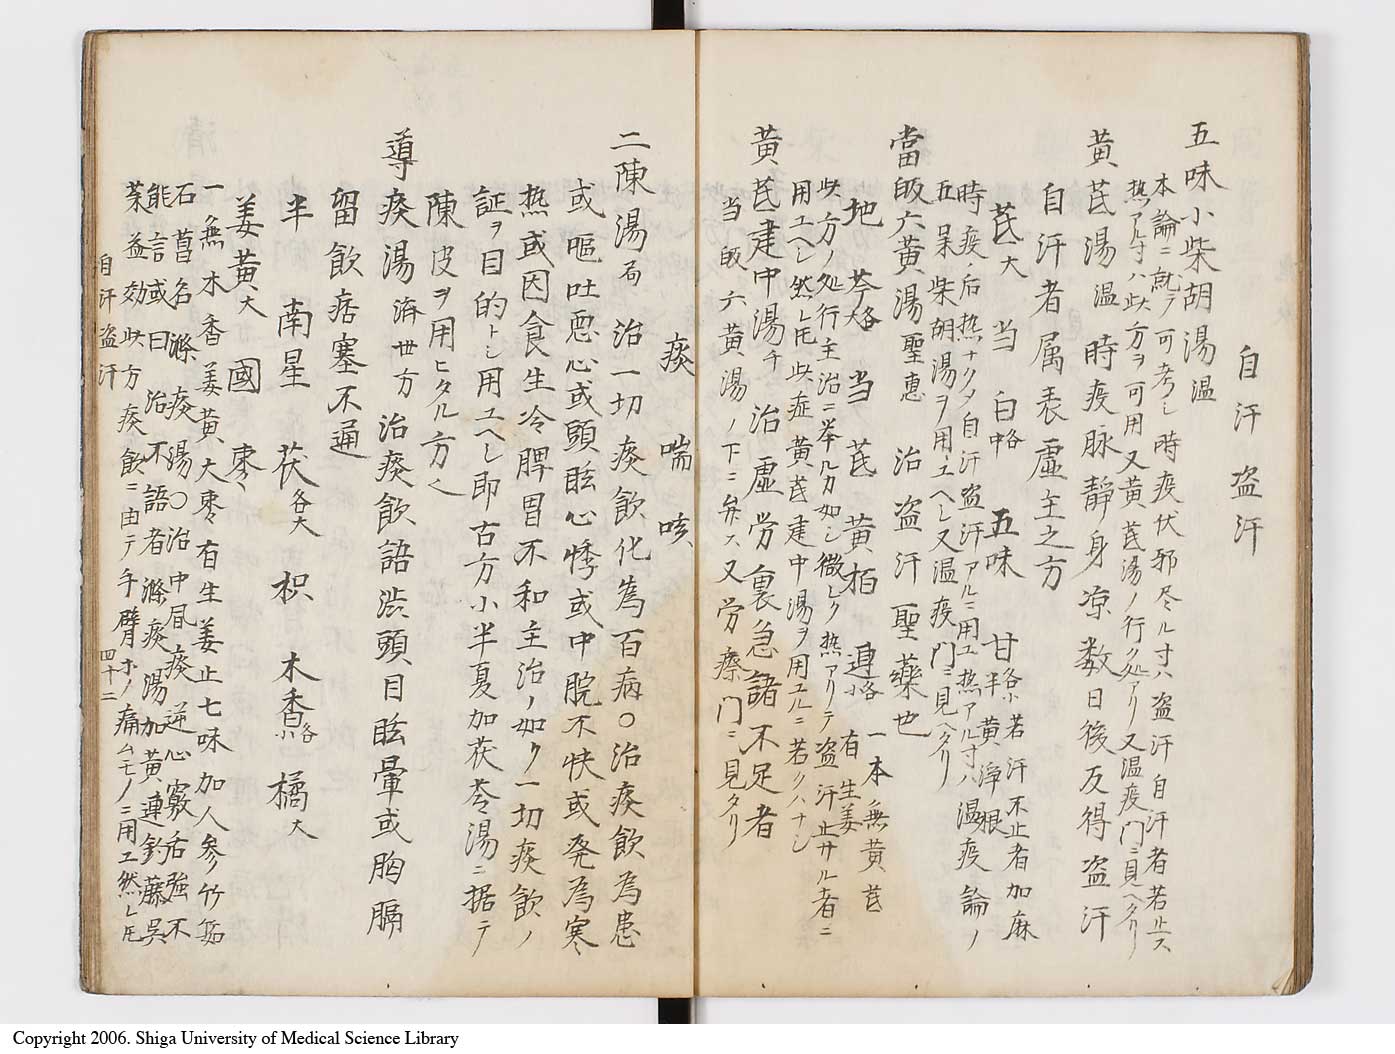 自汗盗汗
五味小柴胡湯 温
本論ニ就テ可考シ時疫伏邪尽ル寸ハ盗汗自汗者若止ス
熱アル寸ハ此方ヲ可用又黄芪湯ノ行ク処アリ又温疫門ニ見ヘタリ
黄芪湯 温 時疫脉静身凉数日後反得盗汗
自汗者属表虚主之方
芪大 当 白中各 五味 甘各小半 黄浄根 若汗不止者加麻
時疫ノ后熱ナクタ自汗盗汗アルニ用エ熱アル寸ハ温疫論ノ
五呆柴胡湯ヲ用エヘシ又温疫門ニ見ヘタリ
當皈六黄湯 聖惠 治盗汗聖藥也
地 芩各大 当 芪 黄 柏 連各小 一本無黄芪有生姜
此方ノ処行主治ニ挙ルカ如シ微シク熱アリテ盗汗止サル者ニ
用エヘシ然レ𪜈此症黄芪建中湯ヲ用エルニ若クハナシ
黄芪建中湯 千 治虚労裏急諸不足者
当皈六黄湯ノ下ニ弁ス又労瘵門ニ見タリ
痰喘咳
二陳湯 局 治一切痰飲化為百病〇治痰飲為患
或嘔吐悪心或頭眩心悸或中脘不快或発為寒
熱或因食生冷脾胃不和主治ノ如ク一切痰飲ノ
証ヲ目的トシ用エヘシ即古方小半夏加茯苓湯ニ据テ
陳皮ヲ用ヒタル方也
導痰湯 済世方 治痰飲語渋頭目眩暈或胸膈
留飲痞塞不通
半 南星 茯各大 枳 木香各小 橘大
姜黄大 國 棗
一無木香姜黄大棗有生姜止七味加人参竹筎
石菖名滌痰湯〇治中風痰逆心竅舌強不
能言或曰治不語者滌痰湯加黄連釣藤呉
茱益効此方痰飲ニ由テ手臂ホノ痛ムモノニ用エ然レ𪜈
自汗盗汗 四十二
Copyright 2006. Shiga University of Medical Science Library